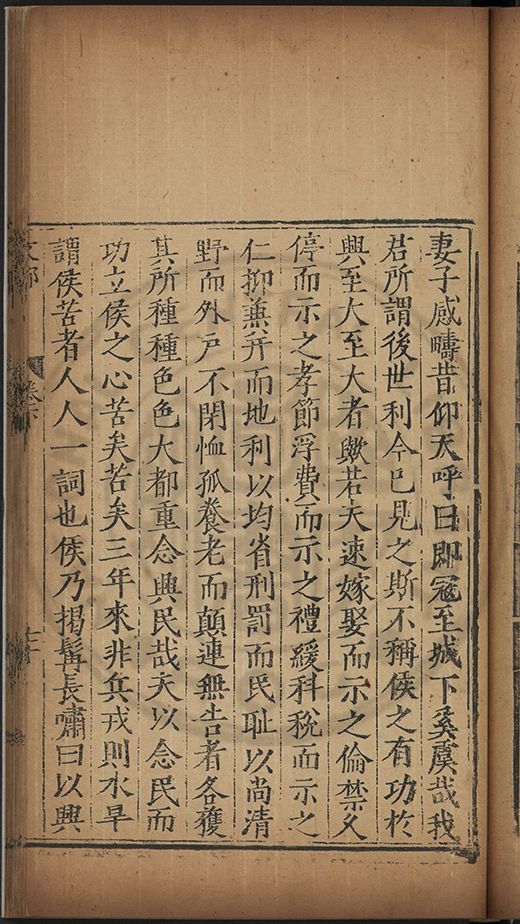 妻子感疇昔仰天呼曰即寇至城下奚虞哉我
君所謂後世利今已見之斯不稱侯之有功於
興至大至大者歟若夫速嫁娶而示之倫禁久
停而示之孝節浮費而示之禮緩科稅而示之
仁抑蒹并而地利以均省刑罰而民恥以尚清
野而外戶不閉恤孤養老而顛連無告者各獲
其所種種色色大都重念興民哉夫以念民而
功立侯之心苦矣苦矣三年來非兵戎則水旱
謂侯苦者人人一詞也侯乃揭髯長嘯曰以興